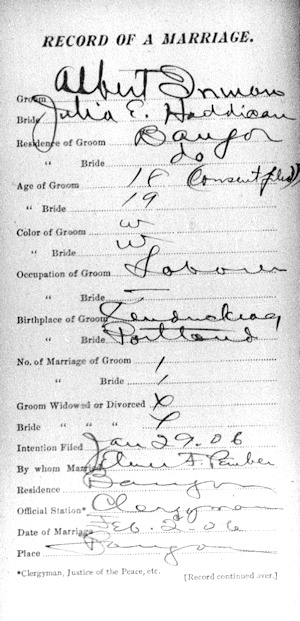 RECORD OF A MARRIAGE.
Groom Albert Inman
Bride Julia E. Haddican
Residence of Groom Bangor
" Bride do
Age of Groom 18 (Consent filed)
" Bride 19
Color of Groom w
" Bride w
Occupation of Groom Laborer
" Bride —
Birthplace of Groom Kenduskeag
" Bride Portland
No. of Marriage of Groom 1
" Bride 1
Groom Widowed or Divorced x
Bride " " " x
Intention Filed Jan 29. 06
By whom Married Elmer F. Pember
Residence Bangor
Official Station* Clergyman
Date of Marriage Feb. 2- 06
Place Bangor
*Clergyman, Justice of the Peace, etc. [Record continued over.]